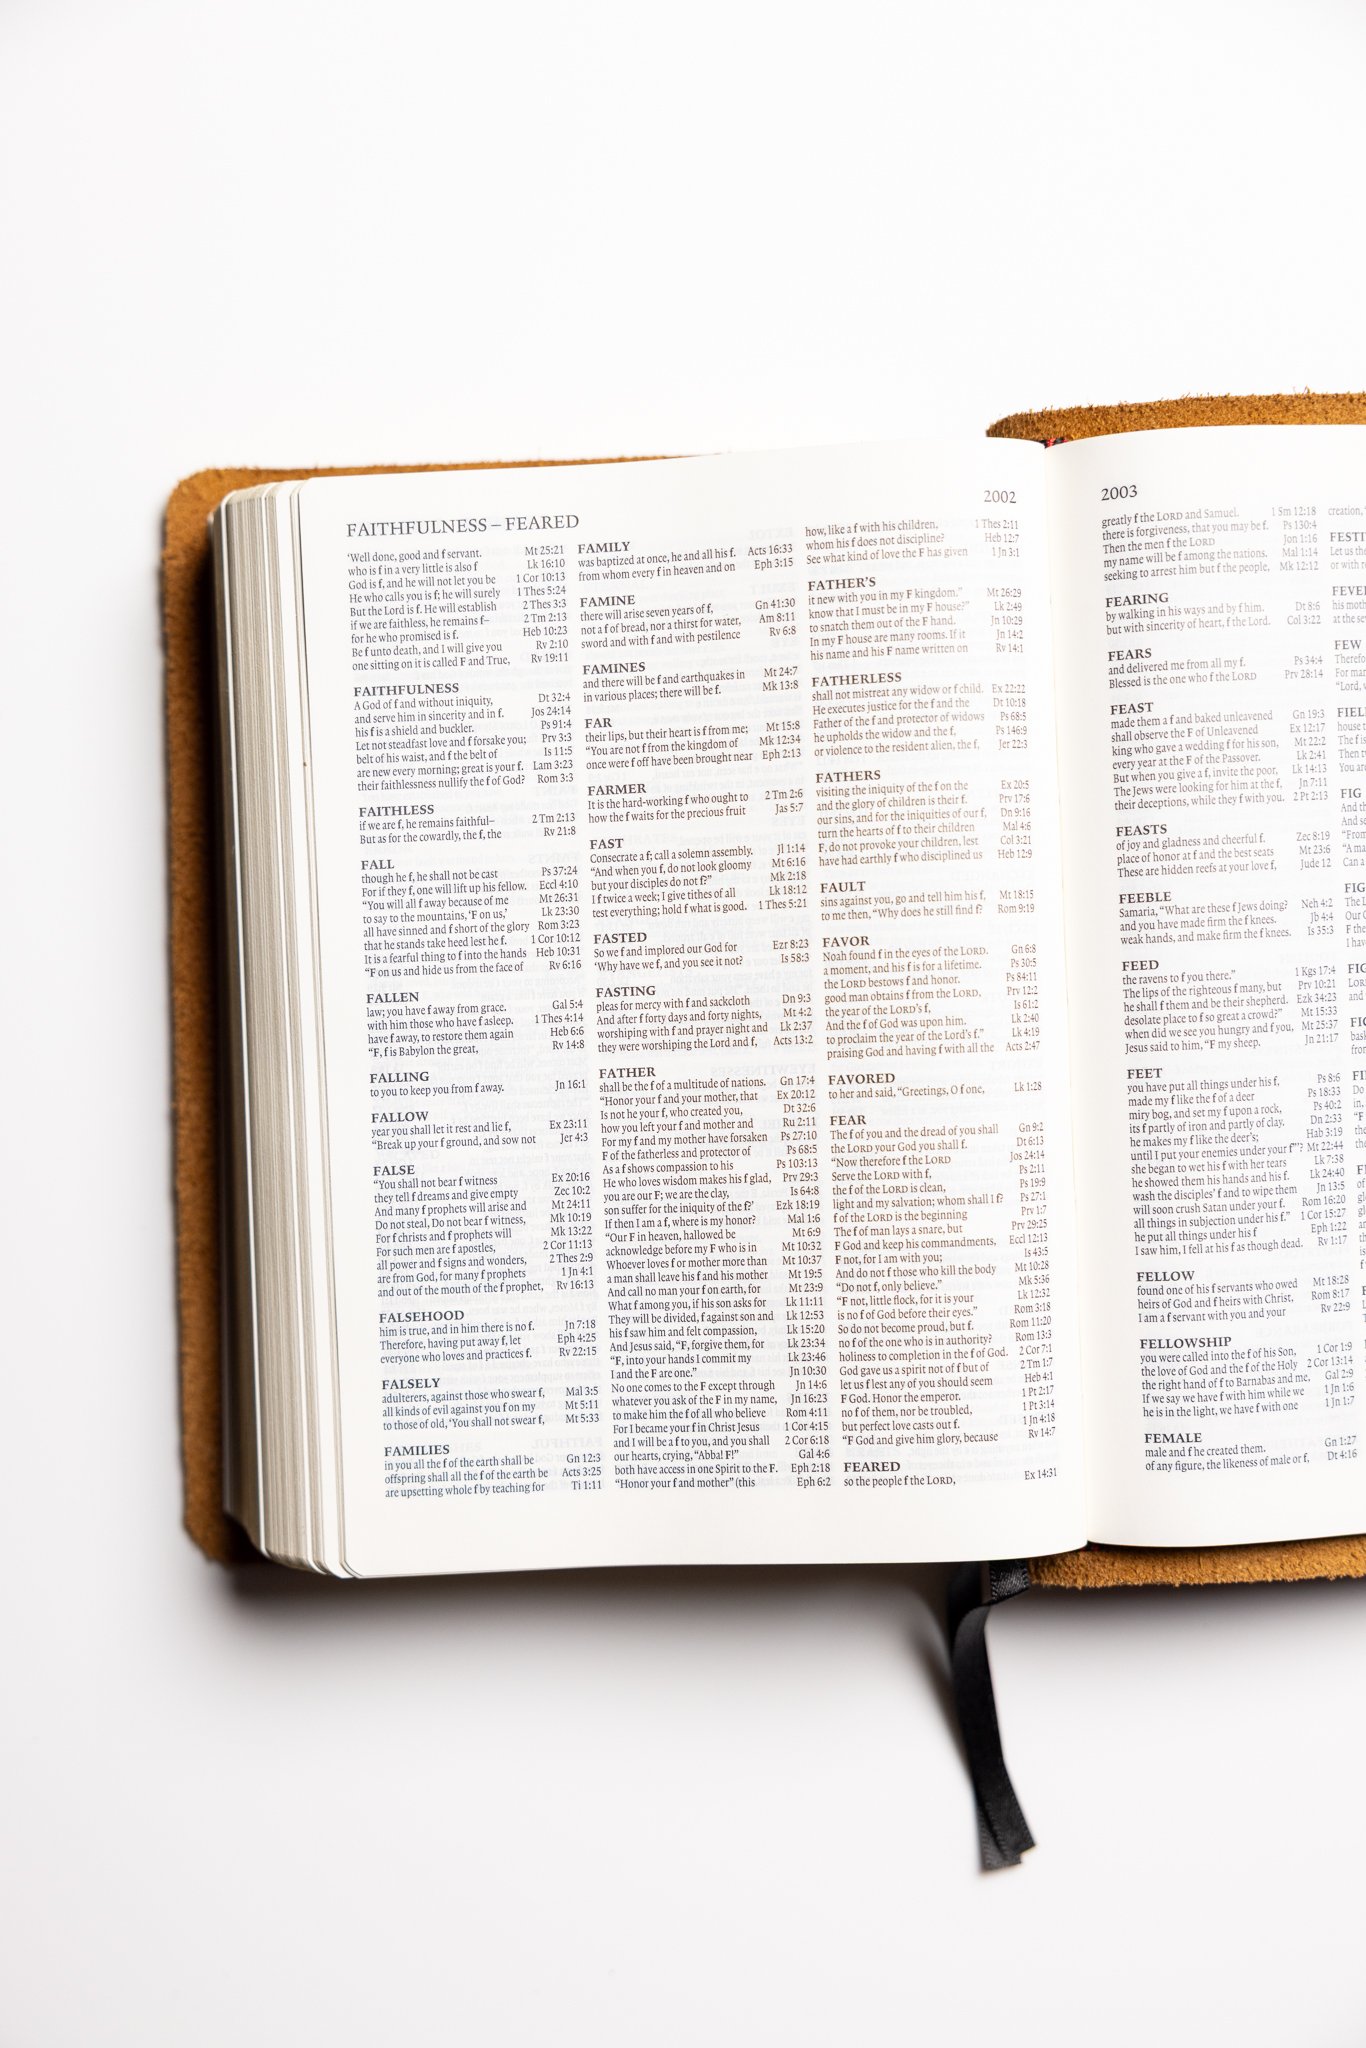 FAITHFULNESS – FEARED
2002
‘Well done, good and f servant. Mt 25:21
who is f in a very little is also f Lk 16:10
God is f, and he will not let you be 1 Cor 10:13
He who calls you is f; he will surely 1 Thes 5:24
But the Lord is f. He will establish 2 Thes 3:3
if we are faithless, he remains f– 2 Tm 2:13
for he who promised is f. Heb 10:23
Be f unto death, and I will give you Rv 2:10
one sitting on it is called F and True, Rv 19:11
FAITHFULNESS
A God of f and without iniquity, Dt 32:4
and serve him in sincerity and in f. Jos 24:14
his f is a shield and buckler. Ps 91:4
Let not steadfast love and f forsake you; Prv 3:3
belt of his waist, and f the belt of Is 11:5
are new every morning; great is your f. Lam 3:23
their faithlessness nullify the f of God? Rom 3:3
FAITHLESS
if we are f, he remains faithful– 2 Tm 2:13
But as for the cowardly, the f, the Rv 21:8
FALL
though he f, he shall not be cast Ps 37:24
For if they f, one will lift up his fellow. Eccl 4:10
“You will all f away because of me Mt 26:31
to say to the mountains, ‘F on us,’ Lk 23:30
all have sinned and f short of the glory Rom 3:23
that he stands take heed lest he f. 1 Cor 10:12
It is a fearful thing to f into the hands Heb 10:31
“F on us and hide us from the face of Rv 6:16
FALLEN
law; you have f away from grace. Gal 5:4
with him those who have f asleep. 1 Thes 4:14
have f away, to restore them again Heb 6:6
“F, f is Babylon the great, Rv 14:8
FALLING
to you to keep you from f away. Jn 16:1
FALLOW
year you shall let it rest and lie f, Ex 23:11
“Break up your f ground, and sow not Jer 4:3
FALSE
“You shall not bear f witness Ex 20:16
they tell f dreams and give empty Zec 10:2
And many f prophets will arise and Mt 24:11
Do not steal, Do not bear f witness, Mk 10:19
For f christs and f prophets will Mk 13:22
For such men are f apostles, 2 Cor 11:13
all power and f signs and wonders, 2 Thes 2:9
are from God, for many f prophets 1 Jn 4:1
and out of the mouth of the f prophet, Rv 16:13
FALSEHOOD
him is true, and in him there is no f. Jn 7:18
Therefore, having put away f, let Eph 4:25
everyone who loves and practices f. Rv 22:15
FALSELY
adulterers, against those who swear f, Mal 3:5
all kinds of evil against you f on my Mt 5:11
to those of old, ‘You shall not swear f, Mt 5:33
FAMILIES
in you all the f of the earth shall be Gn 12:3
offspring shall all the f of the earth be Acts 3:25
are upsetting whole f by teaching for Ti 1:11
FAMILY
was baptized at once, he and all his f. Acts 16:33
from whom every f in heaven and on Eph 3:15
FAMINE
there will arise seven years of f, Gn 41:30
not a f of bread, nor a thirst for water, Am 8:11
sword and with f and with pestilence Rv 6:8
FAMINES
and there will be f and earthquakes in Mt 24:7
in various places; there will be f. Mk 13:8
FAR
their lips, but their heart is f from me; Mt 15:8
“You are not f from the kingdom of Mk 12:34
once were f off have been brought near Eph 2:13
FARMER
It is the hard-working f who ought to 2 Tm 2:6
how the f waits for the precious fruit Jas 5:7
FAST
Consecrate a f; call a solemn assembly. Jl 1:14
“And when you f, do not look gloomy Mt 6:16
but your disciples do not f?” Mk 2:18
I f twice a week; I give tithes of all Lk 18:12
test everything; hold f what is good. 1 Thes 5:21
FASTED
So we f and implored our God for Ezr 8:23
‘Why have we f, and you see it not? Is 58:3
FASTING
pleas for mercy with f and sackcloth Dn 9:3
And after f forty days and forty nights, Mt 4:2
worshiping with f and prayer night and Lk 2:37
they were worshiping the Lord and f, Acts 13:2
FATHER
shall be the f of a multitude of nations. Gn 17:4
“Honor your f and your mother, that Ex 20:12
Is not he your f, who created you, Dt 32:6
how you left your f and mother and Ru 2:11
For my f and my mother have forsaken Ps 27:10
F of the fatherless and protector of Ps 68:5
As a f shows compassion to his Ps 103:13
He who loves wisdom makes his f glad, Prv 29:3
you are our F; we are the clay, Is 64:8
son suffer for the iniquity of the f?’ Ezk 18:19
If then I am a f, where is my honor? Mal 1:6
“Our F in heaven, hallowed be Mt 6:9
acknowledge before my F who is in Mt 10:32
Whoever loves f or mother more than Mt 10:37
a man shall leave his f and his mother Mt 19:5
And call no man your f on earth, for Mt 23:9
What f among you, if his son asks for Lk 11:11
They will be divided, f against son and Lk 12:53
his f saw him and felt compassion, Lk 15:20
And Jesus said, “F, forgive them, for Lk 23:34
“F, into your hands I commit my Lk 23:46
I and the F are one.” Jn 10:30
No one comes to the F except through Jn 14:6
whatever you ask of the F in my name, Jn 16:23
to make him the f of all who believe Rom 4:11
For I became your f in Christ Jesus 1 Cor 4:15
and I will be a f to you, and you shall 2 Cor 6:18
our hearts, crying, “Abba! F!” Gal 4:6
both have access in one Spirit to the F. Eph 2:18
“Honor your f and mother” (this Eph 6:2
how, like a f with his children, 1 Thes 2:11
whom his f does not discipline? Heb 12:7
See what kind of love the F has given 1 Jn 3:1
FATHER’S
it new with you in my F kingdom.” Mt 26:29
know that I must be in my F house?” Lk 2:49
to snatch them out of the F hand. Jn 10:29
In my F house are many rooms. If it Jn 14:2
his name and his F name written on Rv 14:1
FATHERLESS
shall not mistreat any widow or f child. Ex 22:22
He executes justice for the f and the Dt 10:18
Father of the f and protector of widows Ps 68:5
he upholds the widow and the f, Ps 146:9
or violence to the resident alien, the f, Jer 22:3
FATHERS
visiting the iniquity of the f on the Ex 20:5
and the glory of children is their f. Prv 17:6
our sins, and for the iniquities of our f, Dn 9:16
turn the hearts of f to their children Mal 4:6
F, do not provoke your children, lest Col 3:21
have had earthly f who disciplined us Heb 12:9
FAULT
sins against you, go and tell him his f, Mt 18:15
to me then, “Why does he still find f? Rom 9:19
FAVOR
Noah found f in the eyes of the LORD. Gn 6:8
a moment, and his f is for a lifetime. Ps 30:5
the LORD bestows f and honor. Ps 84:11
good man obtains f from the LORD, Prv 12:2
the year of the LORD’s f, Is 61:2
And the f of God was upon him. Lk 2:40
to proclaim the year of the Lord’s f.” Lk 4:19
praising God and having f with all the Acts 2:47
FAVORED
to her and said, “Greetings, O f one, Lk 1:28
FEAR
The f of you and the dread of you shall Gn 9:2
the LORD your God you shall f. Dt 6:13
“Now therefore f the LORD Jos 24:14
Serve the LORD with f, Ps 2:11
the f of the LORD is clean, Ps 19:9
light and my salvation; whom shall I f? Ps 27:1
f of the LORD is the beginning Prv 1:7
The f of man lays a snare, but Prv 29:25
F God and keep his commandments, Eccl 12:13
F not, for I am with you; Is 43:5
And do not f those who kill the body Mt 10:28
“Do not f, only believe.” Mk 5:36
“F not, little flock, for it is your Lk 12:32
is no f of God before their eyes.” Rom 3:18
So do not become proud, but f. Rom 11:20
no f of the one who is in authority? Rom 13:3
holiness to completion in the f of God. 2 Cor 7:1
God gave us a spirit not of f but of 2 Tm 1:7
let us f lest any of you should seem Heb 4:1
F God. Honor the emperor. 1 Pt 2:17
no f of them, nor be troubled, 1 Pt 3:14
but perfect love casts out f. 1 Jn 4:18
“F God and give him glory, because Rv 14:7
FEARED
so the people f the LORD, Ex 14:31
2003
greatly f the LORD and Samuel. 1 Sm 12:18
there is forgiveness, that you may be f. Ps 130:4
Then the men f the LORD Jon 1:16
my name will be f among the nations. Mal 1:14
seeking to arrest him but f the people, Mk 12:12
FEARING
by walking in his ways and by f him. Dt 8:6
but with sincerity of heart, f the Lord. Col 3:22
FEARS
and delivered me from all my f. Ps 34:4
Blessed is the one who f the LORD Prv 28:14
FEAST
made them a f and baked unleavened Gn 19:3
shall observe the F of Unleavened Ex 12:17
king who gave a wedding f for his son, Mt 22:2
every year at the F of the Passover. Lk 2:41
But when you give a f, invite the poor, Lk 14:13
The Jews were looking for him at the f, Jn 7:11
their deceptions, while they f with you. 2 Pt 2:13
FEASTS
of joy and gladness and cheerful f. Zec 8:19
place of honor at f and the best seats Mt 23:6
These are hidden reefs at your love f, Jude 12
FEEBLE
Samaria, “What are these f Jews doing? Neh 4:2
and you have made firm the f knees. Jb 4:4
weak hands, and make firm the f knees. Is 35:3
FEED
the ravens to f you there.” 1 Kgs 17:4
The lips of the righteous f many, but Prv 10:21
he shall f them and be their shepherd. Ezk 34:23
desolate place to f so great a crowd?” Mt 15:33
when did we see you hungry and f you, Mt 25:37
Jesus said to him, “F my sheep. Jn 21:17
FEET
you have put all things under his f, Ps 8:6
made my f like the f of a deer Ps 18:33
miry bog, and set my f upon a rock, Ps 40:2
its f partly of iron and partly of clay. Dn 2:33
he makes my f like the deer’s; Hab 3:19
until I put your enemies under your f”’? Mt 22:44
she began to wet his f with her tears Lk 7:38
he showed them his hands and his f. Lk 24:40
wash the disciples’ f and to wipe them Jn 13:5
will soon crush Satan under your f. Rom 16:20
all things in subjection under his f.” 1 Cor 15:27
he put all things under his f Eph 1:22
I saw him, I fell at his f as though dead. Rv 1:17
FELLOW
found one of his f servants who owed Mt 18:28
heirs of God and f heirs with Christ, Rom 8:17
I am a f servant with you and your Rv 22:9
FELLOWSHIP
you were called into the f of his Son, 1 Cor 1:9
the love of God and the f of the Holy 2 Cor 13:14
the right hand of f to Barnabas and me, Gal 2:9
If we say we have f with him while we 1 Jn 1:6
he is in the light, we have f with one 1 Jn 1:7
FEMALE
male and f he created them. Gn 1:27
of any figure, the likeness of male or f, Dt 4:16
creation,
Let us
or with
his
at the
FEW
For
“Lord,
house
The f is
Then
You are
FIG
And
And
“From
Can a